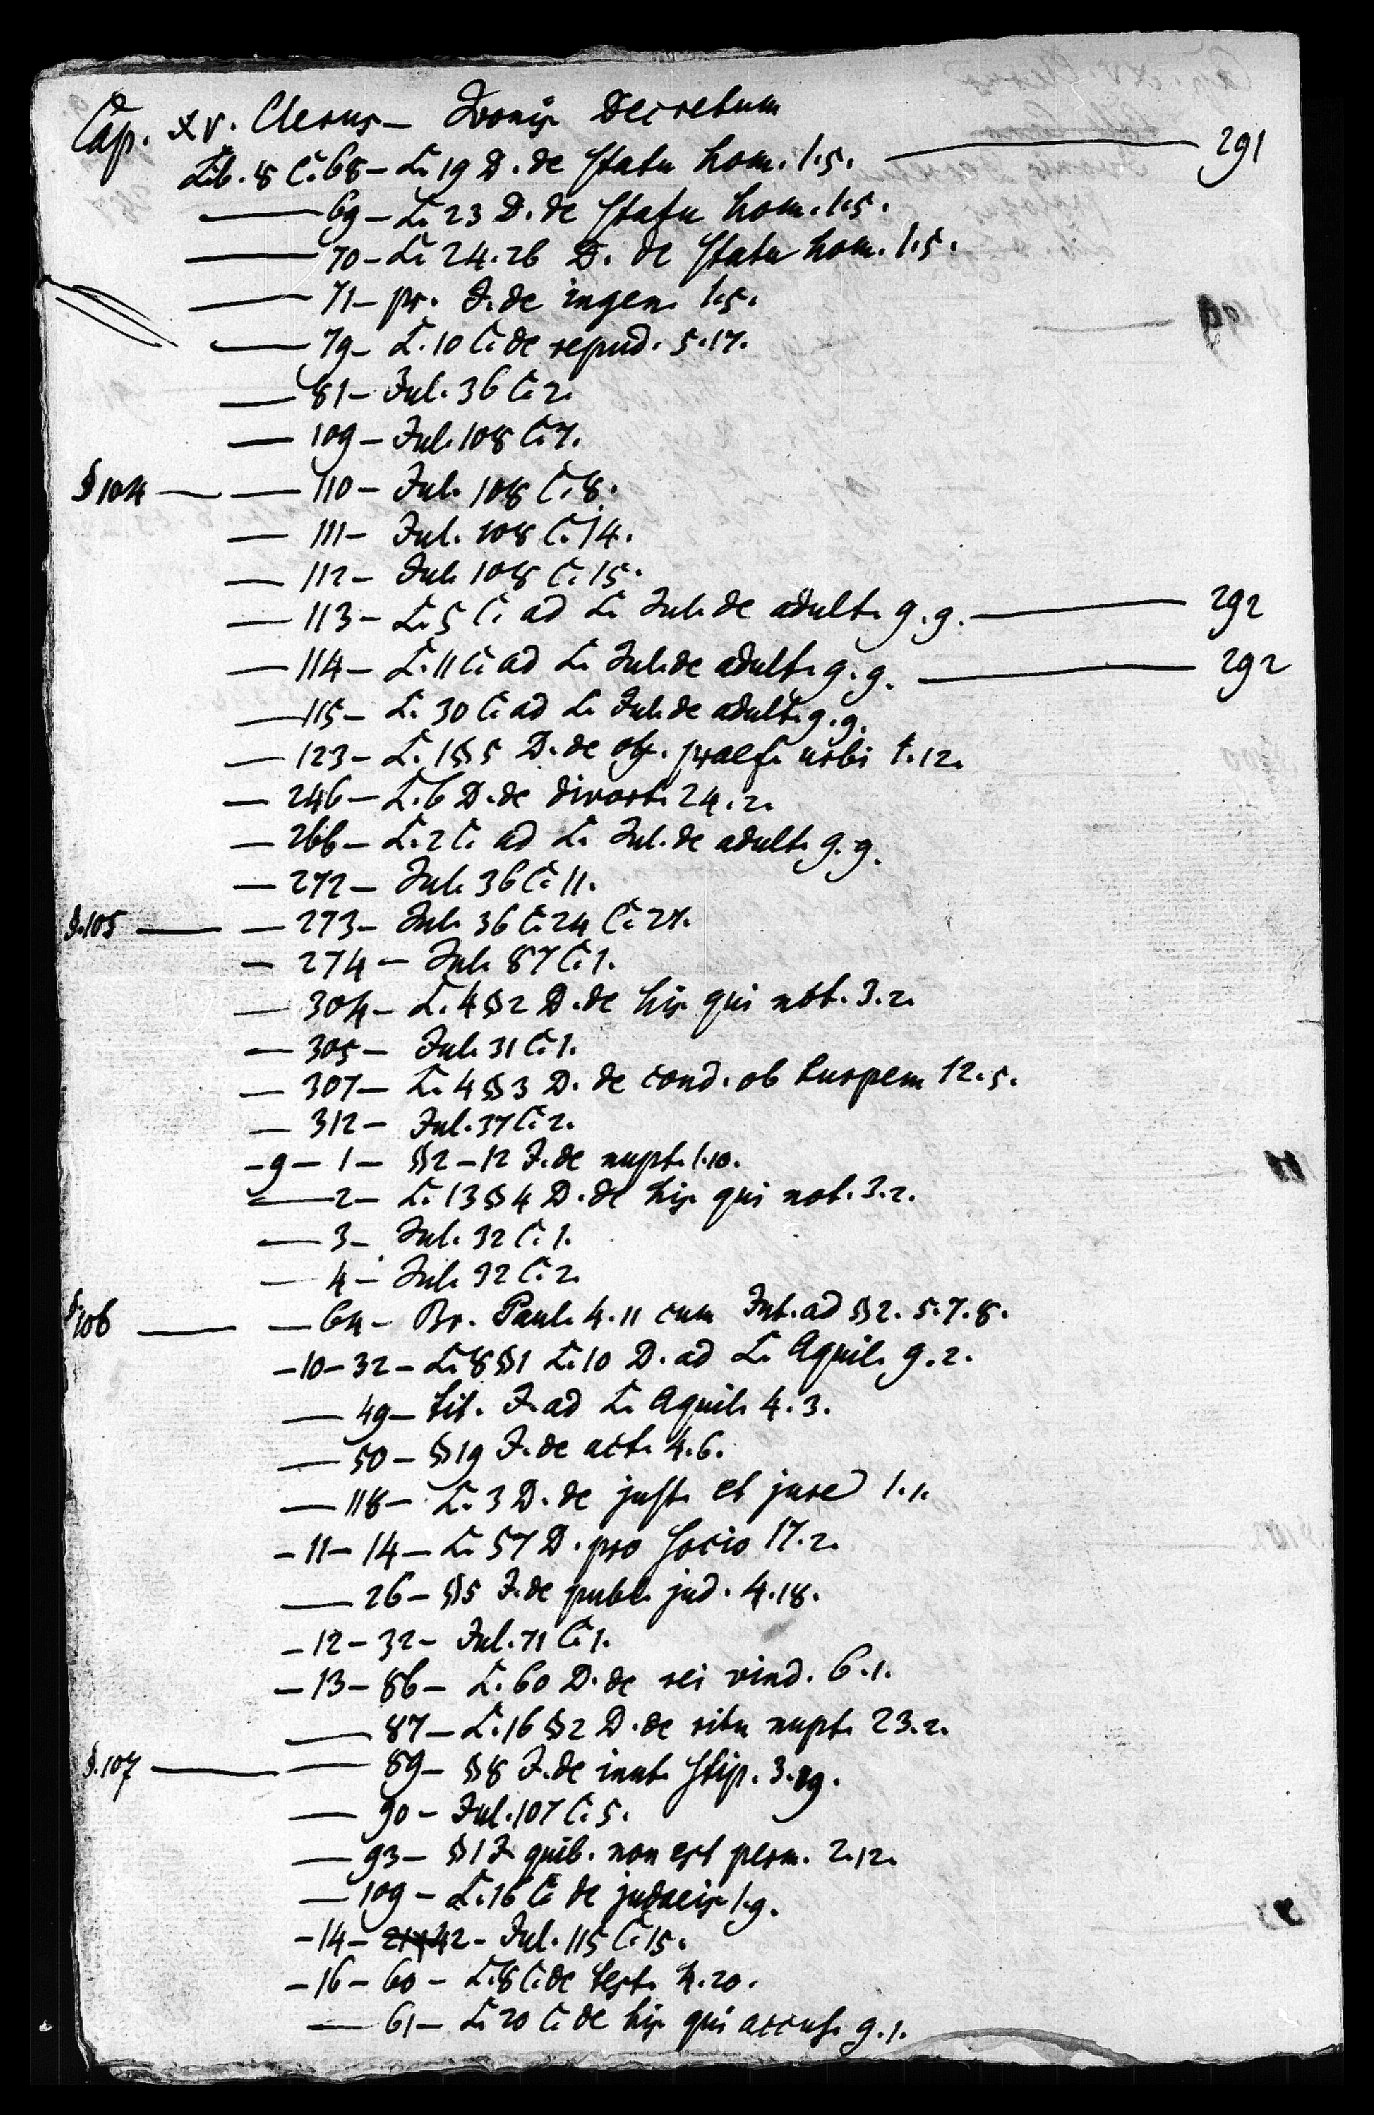 Cap. XV. Clerus - Ivonis Decretum
Lib. 8 C. 68 - L. 19 D. de statu hom. 1.5. — 291
— 69 - L. 23 D. de statu hom. 1.5.
— 70 - L. 24. 26 D. de statu hom. 1.5.
— 71 - pr. J. de ingen. 1.5.
— 79 - L. 10 C. de repud. 5.17.
— 81 - Jul. 36 C. 2.
— 109 - Jul. 108 C. 7.
§ 104 — — 110 - Jul. 108 C. 8.
— 111 - Jul. 108 C. 14.
— 112 - Jul. 108 C. 15.
— 113 - L. 5 C. ad L. Jul. de adult. 9.9. — 292
— 114 - L. 11 C. ad L. Jul. de adult. 9.9. — 292
— 115 - L. 30 C. ad L. Jul. de adult. 9.9.
— 123 - L. 1 § 5 D. de off. praef. urbi 1.12.
— 246 - L. 6 D. de divort. 24.2.
— 266 - L. 2 C. ad L. Jul. de adult. 9.9.
— 272 - Jul. 36 C. 11.
§. 105 — — 273 - Jul. 36 C. 24 C. 27.
— 274 - Jul. 87 C. 1.
— 304 - L. 4 § 2 D. de his qui not. 3.2.
— 305 - Jul. 31 C. 1.
— 307 - L. 4 § 3 D. de cond. ob turpem 12.5.
— 312 - Jul. 37 C. 2.
- 9 - 1 - § 2 - 12 J. de nupt. 1.10.
— 2 - L. 13 § 4 D. de his qui not. 3.2.
— 3 - Jul. 32 C. 1.
— 4 - Jul. 32 C. 2.
§ 106 — — 64 - Br. Paul. 4.11 cum Int. ad § 2. 5. 7. 8.
- 10 - 32 - L. 8 § 1 L. 10 D. ad L. Aquil. 9.2.
— 49 - tit. J. ad L. Aquil. 4.3.
— 50 - § 19 J. de act. 4.6.
— 118 - L. 3 D. de just. et jure 1.1.
- 11 - 14 - L. 57 D. pro socio 17.2.
— 26 - § 5 J. de publ. jud. 4.18.
- 12 - 32 - Jul. 71 C. 1.
- 13 - 86 - L. 60 D. de rei vind. 6.1.
— 87 - L. 16 § 2 D. de ritu nupt. 23.2.
§. 107 — — 89 - § 8 J. de inut. stip. 3.19.
— 90 - Jul. 107 C. 5.
— 93 - § 1 J. quib. non est perm. 2.12.
— 109 - L. 16 C. de judaeis 1.9.
- 14 - 42 - Jul. 115 C. 15.
- 16 - 60 - L. 8 C. de test. 4.20.
— 61 - L. 20 C. de his qui accus. 9.1.